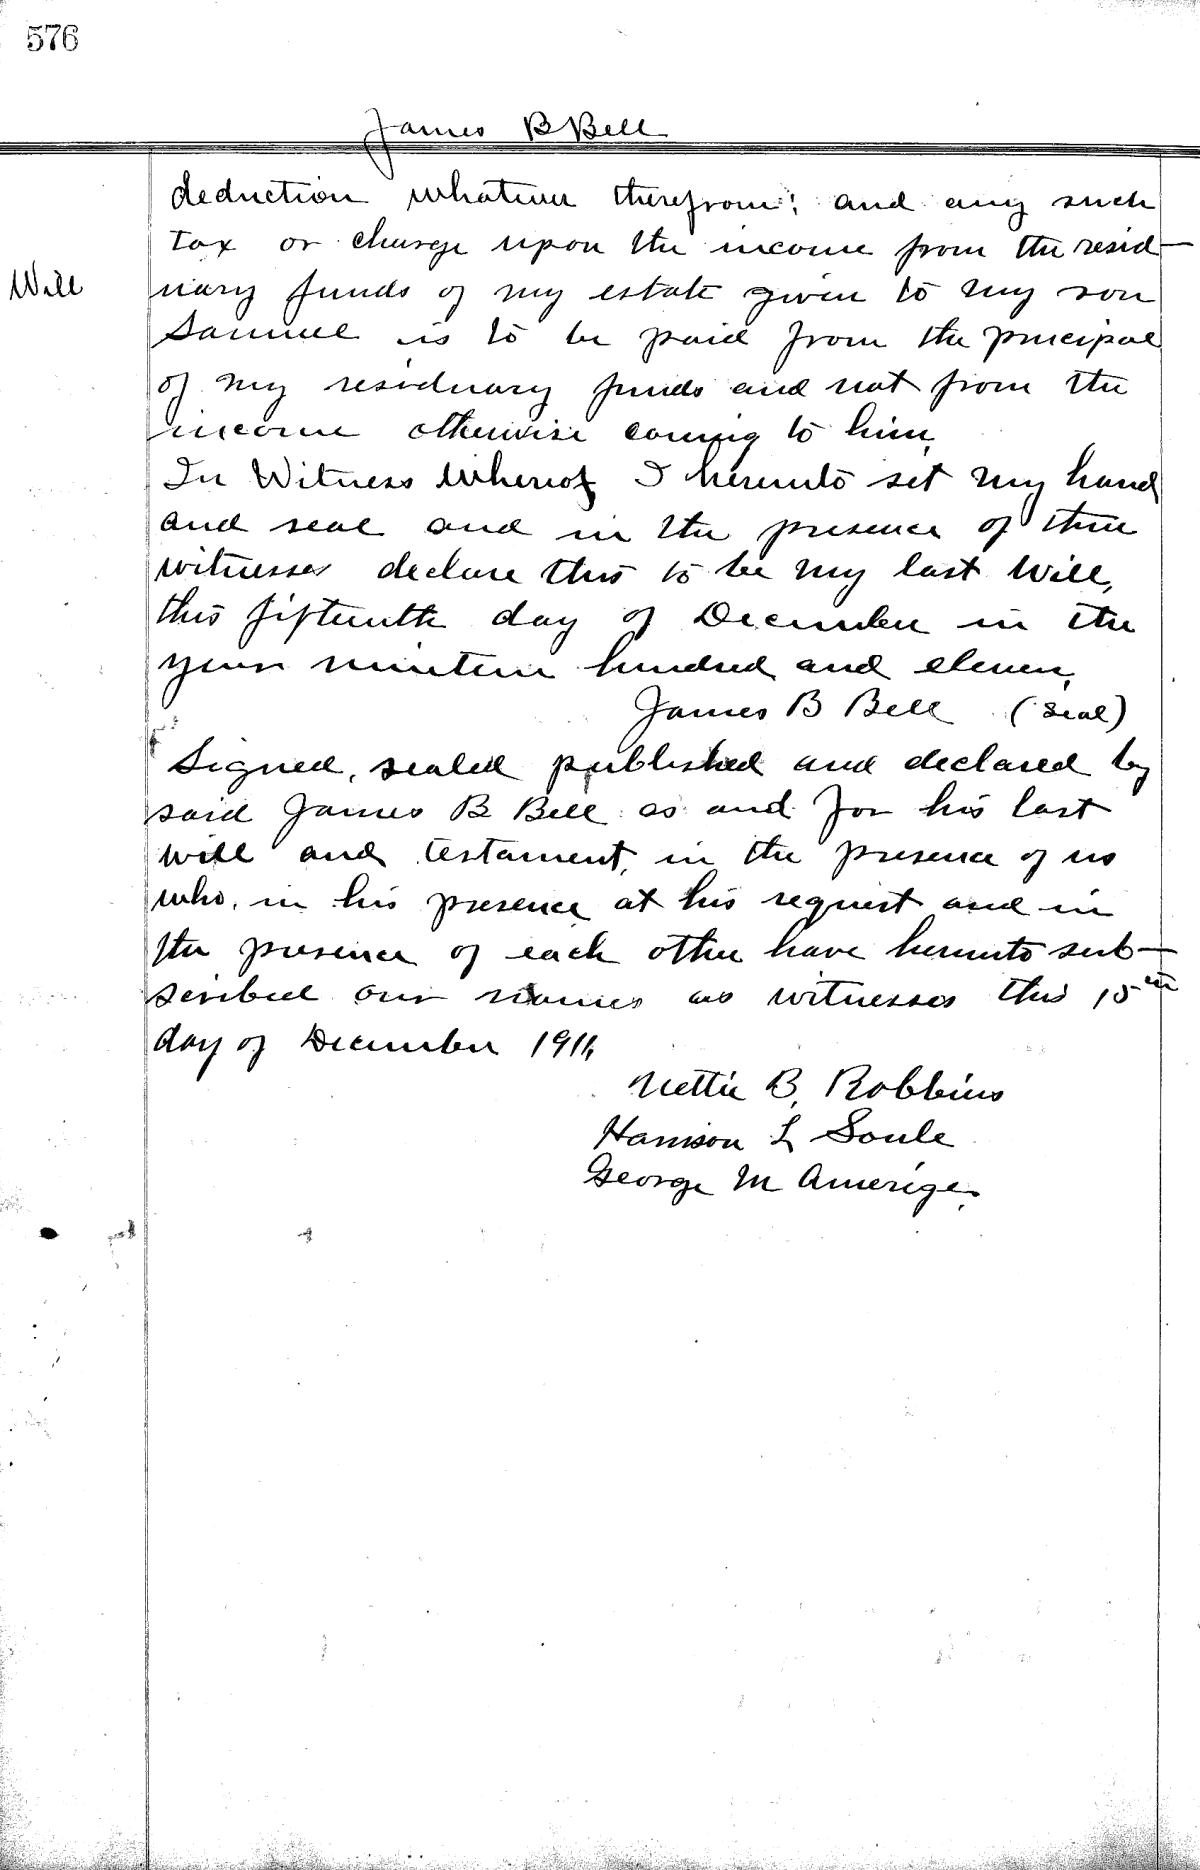 576
James B Bell
deduction whatever therefrom; and any such
tax or charge upon the income from the resid-
Will
uary funds of my estate given to my son
Samuel is to be paid from the principal
of my residuary funds and not from the
income otherwise coming to him.
In Witness Whereof I hereunto set my hand
and seal and in the presence of three
witnesses declare this to be my last Will,
this fifteenth day of December in the
year nineteen hundred and eleven.
James B Bell (seal)
Signed, sealed published and declared by
said James B Bell as and for his last
will and testament, in the presence of us
who, in his presence at his request and in
the presence of each other have hereunto sub-
scribed our names as witnesses this 15th
day of December 1911.
Nettie B. Robbins
Harrison L Soule
George M Amerige.